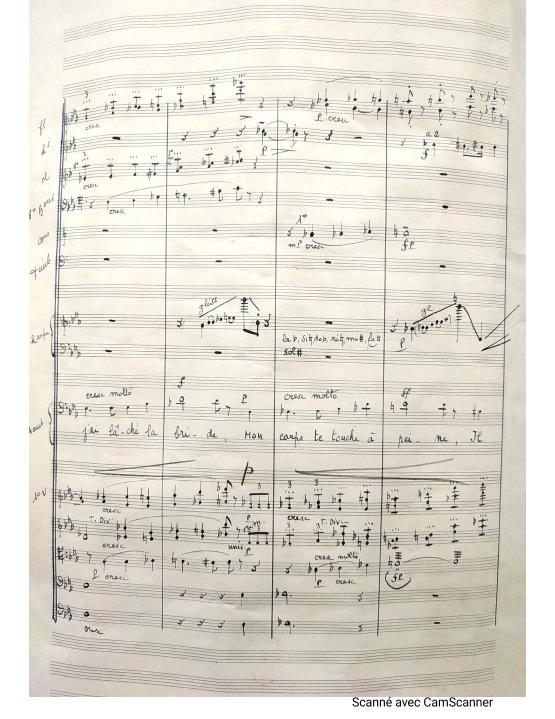 3
cresc
fl
cl
cresc
cresc
p cresc
a 2
f
p
1º
mp cresc
fp
cors
Timb
Harpe
gliss
p
la b, si ♮, do b, ré ♮, mi #, fa #
sol #
cresc molto
f
p
cresc molto
ff
j'ai lâ-ché la bri-de, Mon corps te touche à pei-ne, Il
p
1º V
3
cresc
p
cresc
T. Div
cresc
unis
p
3
3
T. Div
p cresc
cresc molto
p cresc
fp
Scanné avec CamScanner